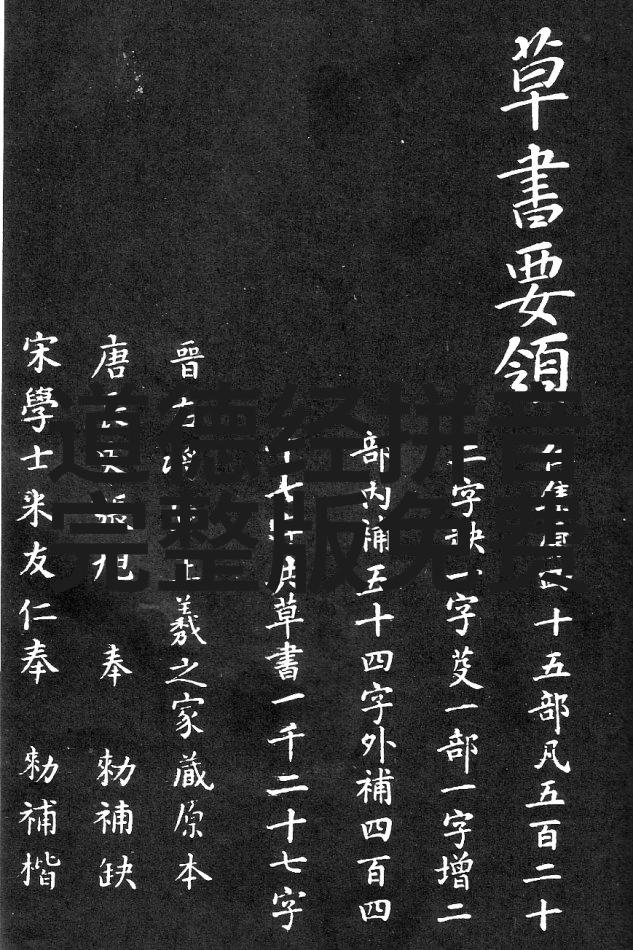 草書要領
十五部凡五百二十
二字缺一字芟一部一字增二
部內補五十四字外補四百四
十七字共草書一千二十七字
晉右將軍王羲之家藏原本
唐長史張旭 奉 勑補缺
宋學士米友仁奉 勑補楷
道德经拼音
完整版免费